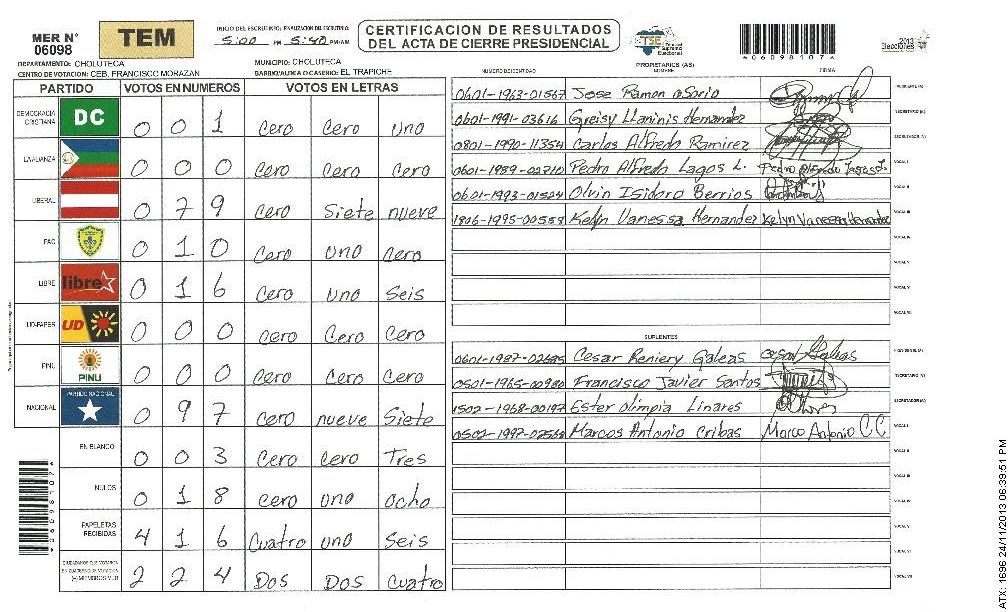 MER N° 06098
TEM
INICIO DEL ESCRUTINIO: FINALIZACION DEL ESCRUTINIO:
5:00 PM 5:40 PM/AM
CERTIFICACION DE RESULTADOS
DEL ACTA DE CIERRE PRESIDENCIAL
TSE Tribunal Supremo Electoral
*06098107*
2013 Elecciones
DEPARTAMENTO: CHOLUTECA MUNICIPIO: CHOLUTECA
CENTRO DE VOTACION: CEB. FRANCISCO MORAZAN BARRIO/ALDEA O CASERIO: EL TRAPICHE
PARTIDO VOTOS EN NUMEROS VOTOS EN LETRAS
DEMOCRACIA CRISTIANA DC 0 0 1 Cero Cero Uno
LA ALIANZA 0 0 0 Cero Cero Cero
LIBERAL 0 7 9 Cero Siete nueve
PAC 0 1 0 Cero uno Cero
LIBRE libre 0 1 6 Cero Uno Seis
UD-FAPER UD 0 0 0 Cero Cero Cero
PINU PINU 0 0 0 Cero Cero Cero
NACIONAL PARTIDO NACIONAL 0 9 7 Cero nueve Siete
EN BLANCO 0 0 3 Cero Cero Tres
NULOS 0 1 8 Cero uno ocho
PAPELETAS RECIBIDAS 4 1 6 Cuatro uno Seis
CIUDADANOS QUE VOTARON EN CUADERNO DE VOTACION (+) MIEMBROS MER 2 2 4 Dos Dos Cuatro
*06098107*
PROPIETARIOS (AS)
NUMERO DE IDENTIDAD NOMBRE FIRMA
0601-1963-01567 Jose Ramon Osorio PRESIDENTE (A)
0601-1991-03616 Greisy Hernandez SECRETARIO (A)
0801-1990-11354 Carlos Alfredo Ramirez ESCRUTADOR (A)
0601-1959-02710 Pedro Alfredo Lagos L. Pedro Alfredo Lagos L. VOCAL I
0601-1993-01524 Olvin Isidoro Berrios VOCAL II
1806-1995-00558 Kelyn Vanessa Hernandez Kelyn Vanessa Hernandez VOCAL III
VOCAL IV
VOCAL V
VOCAL VI
VOCAL VII
SUPLENTES
0601-1987-02685 Cesar Reniery Galeas Cesar Galeas PRESIDENTE (A)
0501-1965-00980 Francisco Javier Santos SECRETARIO (A)
1502-1968-00197 Ester Olimpia Linares ESCRUTADOR (A)
0502-1997-02568 Marcos Antonio Cribas Marco Antonio C C VOCAL I
VOCAL II
VOCAL III
VOCAL IV
VOCAL V
VOCAL VI
VOCAL VII
ATX: 1696 24/11/2013 06:39:51 PM